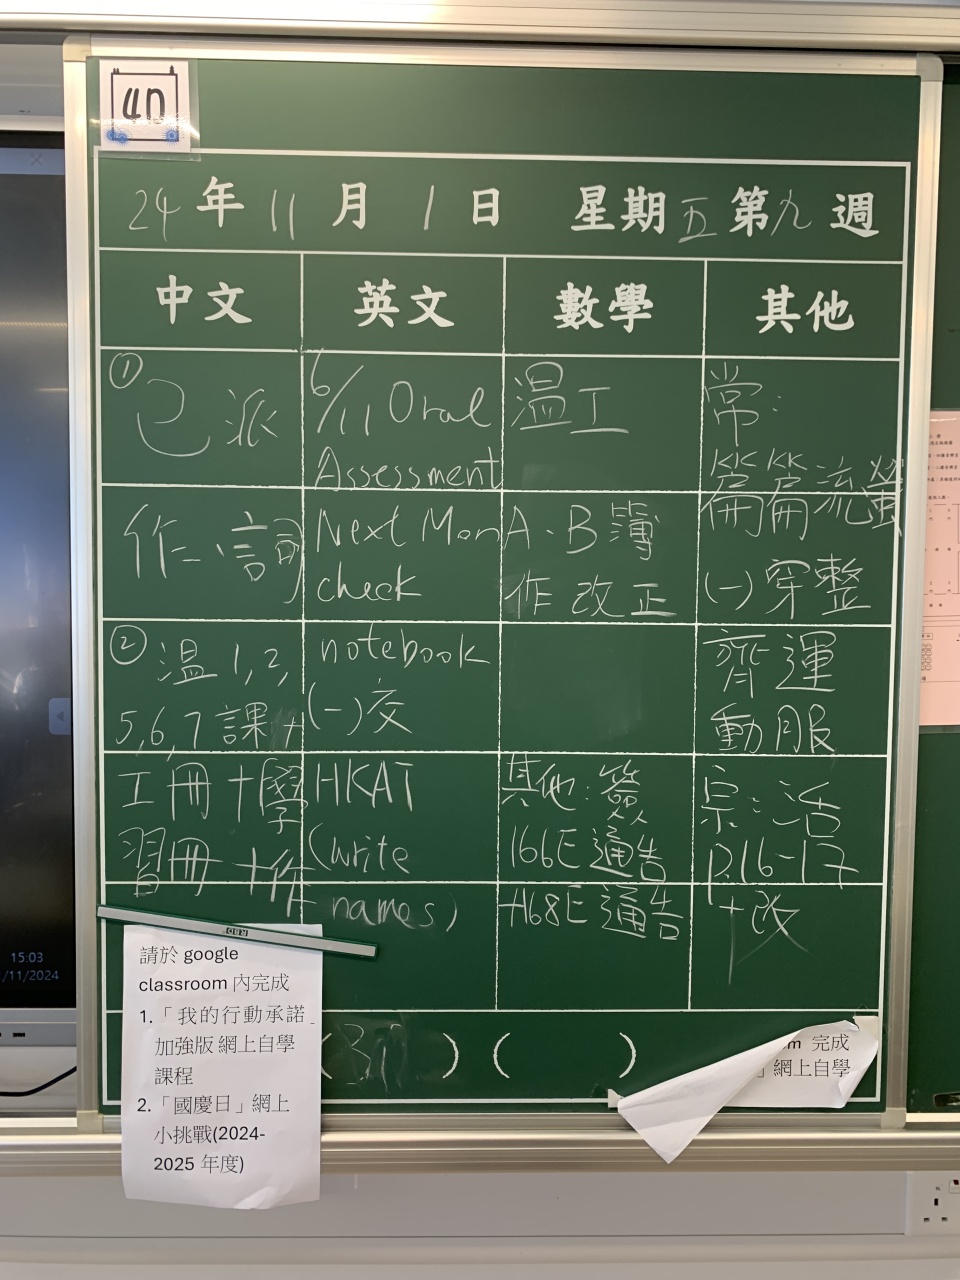 4D
24年11月1日 星期五第九週
中文
英文
數學
其他
① 已派
作二·詞
② 温1,2,
5,6,7課+
工冊+學
習冊+作
6/11 Oral
Assessment
Next Mon
check
notebook
(一)交
HKAT
(write
names)
温工
A·B簿
作改正
其他:簽
166E通告
+168E通告
常:
流螢
(一)穿整
齊運
動服
宗:活
P.16-17
+改
RBD
請於 google
classroom 內完成
1.「我的行動承諾_
加強版網上自學
課程
2.「國慶日」網上
小挑戰(2024-
2025 年度)
( ) ( )
m 完成
」網上自學
15:03
/11/2024